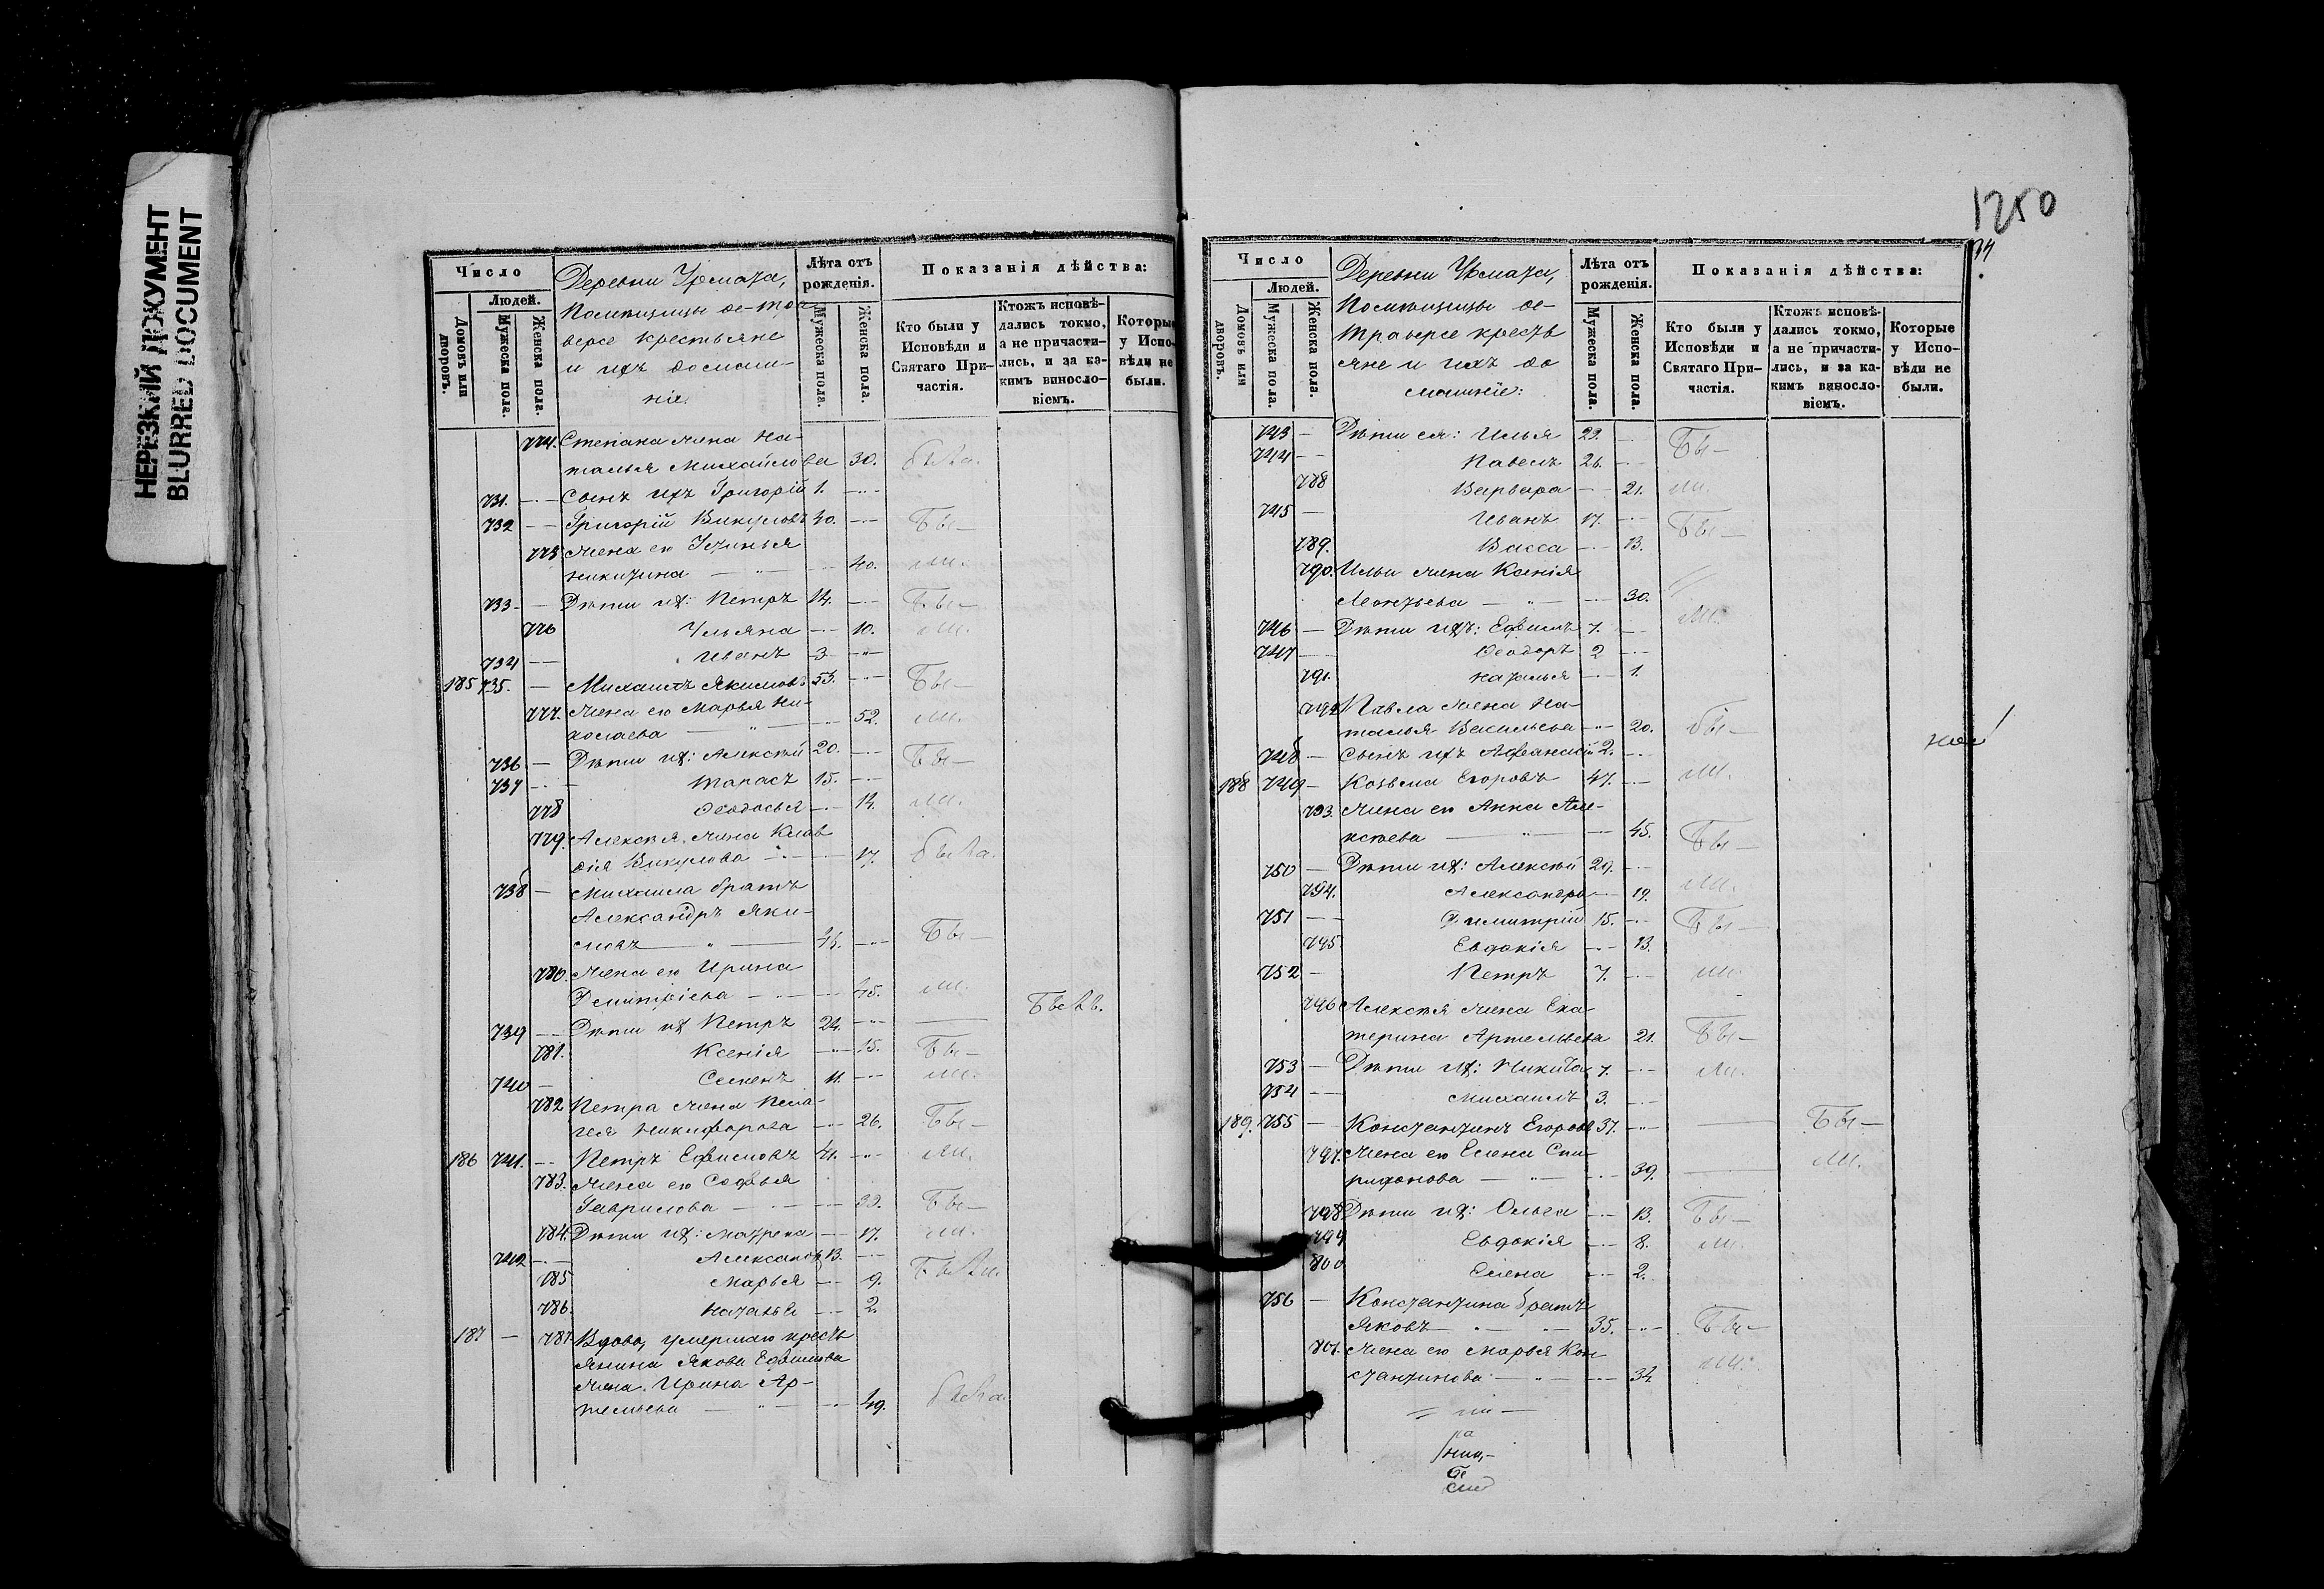 НЕРЕЗКИЙ ДОКУМЕНТ
BLURRED DOCUMENT
Число
Людей.
Домовъ или дворовъ.
Мужеска пола.
Женска пола.
Деревни
Помѣщицы де-Тра
версе крестьяне
и ихъ домаш-
ніе.
Лѣта отъ рожденія.
Мужеска пола.
Женска пола.
Показанія дѣйства:
Кто были у Исповѣди и Святаго При-частія.
Ктожъ исповѣ-дались токмо, а не причасти-лись, и за ка-кимъ винословіемъ.
Которые у Испо-вѣди не были.
774. Степана жена На-
талья Михайлова 30. была.
731. Сынъ ихъ Григорій 1.
732 Григорій Викуловъ 40. Бы-
775 жена его Устинья
Никитина 40. ли.
733 Дѣти их: Петръ 14. Бы-
776 Ульяна 10. ли.
734 Иванъ 3
185 735. Михаилъ Якимовъ 53. Бы-
777. жена его Марья Ни-
колаева 52. ли.
736 Дѣти их: Алексѣй 20. Бы-
737 Тарасъ 15.
778 Ѳеодосья 14. ли.
779. Алексѣя жена Клав
дія Викулова 17. была.
738 Михаила братъ
Александръ Яки-
мовъ Бы-
780. жена его Ирина
Димитріева 45. ли.
Былъ.
739 Дѣти их Петръ 24.
781. Ксенія 15. Бы-
740 Семенъ 11. ли.
782 Петра жена Пела-
гея Никифорова 26. Бы-
186 741. Петръ Ефимовъ 41. ли.
783. жена его Софья
Гаврилова 39. Бы-
784. Дѣти их: Матрена 17. ли.
742 Александръ 13.
785 Марья 9. Были.
786. Наталья 2.
187 787 Вдова, умершаго кресть
янина Якова Ефимова
жена Ирина Ар-
темьева 49. была.
1250
Число
Людей.
Домовъ или дворовъ.
Мужеска пола.
Женска пола.
Деревни
Помѣщицы де-
Траверсе кресть
яне и ихъ до
машніе:
Лѣта отъ рожденія.
Мужеска пола.
Женска пола.
Показанія дѣйства:
Кто были у Исповѣди и Святаго При-частія.
Ктожъ исповѣ-дались токмо, а не причасти-лись, и за ка-кимъ винословіемъ.
Которые у Испо-вѣди не были.
743 Дѣти ея: Илья 29. Бы-
744 Павелъ 26.
788 Варвара 21. ли.
745 Иванъ 17. Бы-
789. Васса 13.
790. Ильи жена Ксенія
Леонтьева 30. ли.
746 Дѣти ихъ: Ефимъ 7.
747 Ѳеодоръ 2
791. Наталья 1.
792 Павла жена На-
талья Васильева 20. бы-
748 Сынъ ихъ Афанасій 2.
188 749 Козьма Егоровъ 47. ли.
793. жена его Анна Але-
ксѣева 45. Бы-
750 Дѣти их: Алексѣй 29.
794. Александра 19. ли.
751 Димитрій 15. Бы-
795 Евдокія 13.
752 Петръ 7. ли.
796 Алексѣя жена Ека-
терина Артемьева 21. Бы-
753 Дѣти их: Никита 7. ли.
754 Михаилъ 3.
189. 755 Константинъ Егоровъ 37. Бы-
797. жена его Елена Спи-
ридонова 39. ли.
798 Дѣти их: Ольга 13. Бы-
799 Евдокія 8. ли.
800 Елена 2.
756 Константина братъ
Яковъ 35. Бы-
801. жена его Марья Кон
стантинова 34 ли.